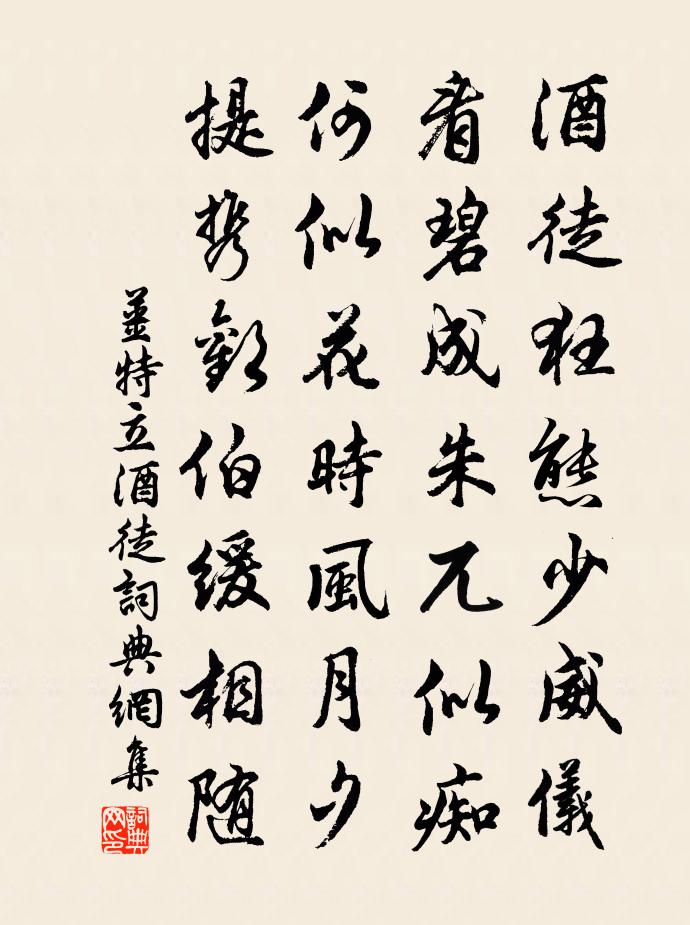 酒徒狂態少威儀
看碧成朱兀似痴
何似花時風月夕
提携歡伯緩相随
姜特立酒徒詞典網集
詞典网印